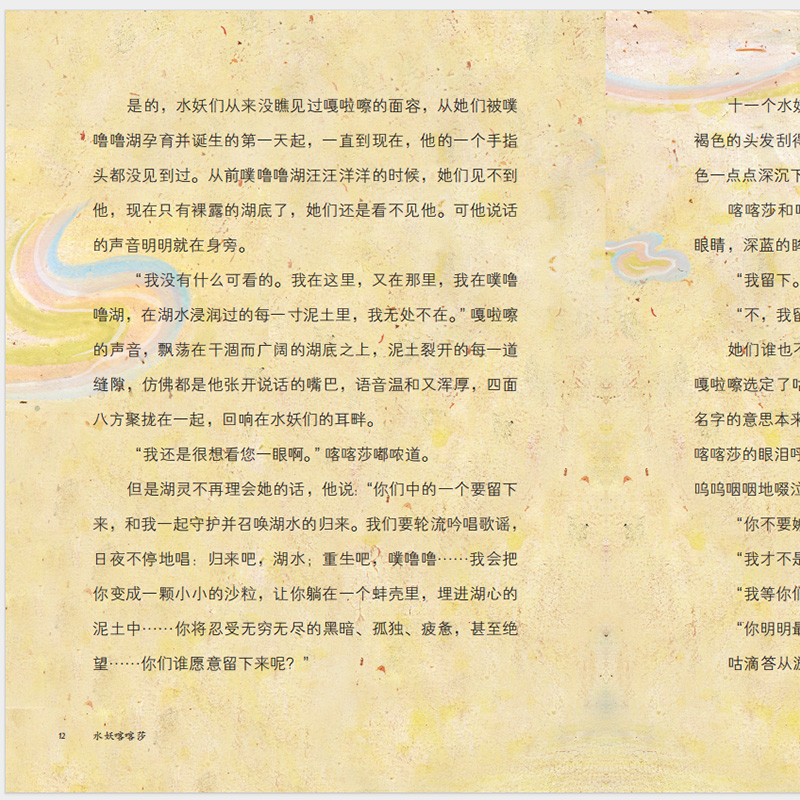 是的，水妖们从来没瞧见过嘎啦嚓的面容，从她们被噗
噜噜湖孕育并诞生的第一天起，一直到现在，他的一个手指
头都没见到过。从前噗噜噜湖汪汪洋洋的时候，她们见不到
他，现在只有裸露的湖底了，她们还是看不见他。可他说话
的声音明明就在身旁。
“我没有什么可看的。我在这里，又在那里，我在噗噜
噜湖，在湖水浸润过的每一寸泥土里，我无处不在。”嘎啦嚓
的声音，飘荡在干涸而广阔的湖底之上，泥土裂开的每一道
缝隙，仿佛都是他张开说话的嘴巴，语音温和又浑厚，四面
八方聚拢在一起，回响在水妖们的耳畔。
“我还是很想看您一眼啊。”喀喀莎嘟哝道。
但是湖灵不再理会她的话，他说：“你们中的一个要留下
来，和我一起守护并召唤湖水的归来。我们要轮流吟唱歌谣，
日夜不停地唱：归来吧，湖水；重生吧，噗噜噜……我会把
你变成一颗小小的沙粒，让你躺在一个蚌壳里，埋进湖心的
泥土中……你将忍受无穷无尽的黑暗、孤独、疲惫，甚至绝
望……你们谁愿意留下来呢？”
12 水妖喀喀莎
十一个水妖
褐色的头发刮得
色一点点深沉下
喀喀莎和
眼睛，深蓝的眸
“我留下。
“不，我留
她们谁也不
嘎啦嚓选定了咕
名字的意思本来
喀喀莎的眼泪呼
呜呜咽咽地啜泣
“你不要
“我才不是
“我等你们
“你明明最
咕滴答从